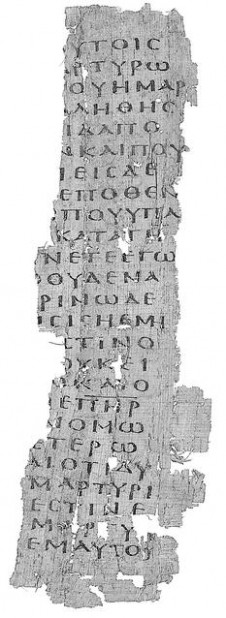 ΥΤΟΙϹ
ΡΤΥΡΩ
ΟΥΗΜΑΡ
ΛΗΘΗϹ
ΙΔΑΠΟ
ΝΚΑΙΠΟΥ
ΜΕΙϹΔΕ
ΕΠΟΘΕ
ΠΟΥΥΠΑ
ΚΑΤΑΤΗ
ΝΕΤΕΕΓΩ
ΟΥΔΕΝΑ
ΡΙΝΩΔΕ
ΙϹΙϹΗΕΜΗ
ϹΤΙΝΟ
ΟΥΚΕΙ
ΚΑΙΟ
ΕΠΗΡ
ΝΟΜΩ
ΤΕΡΩ
ΑΙΟΤΙΔΥ
ΜΑΡΤΥΡΙ
ΕϹΤΙΝΕ
ΕΜΑΥΤΟΥ